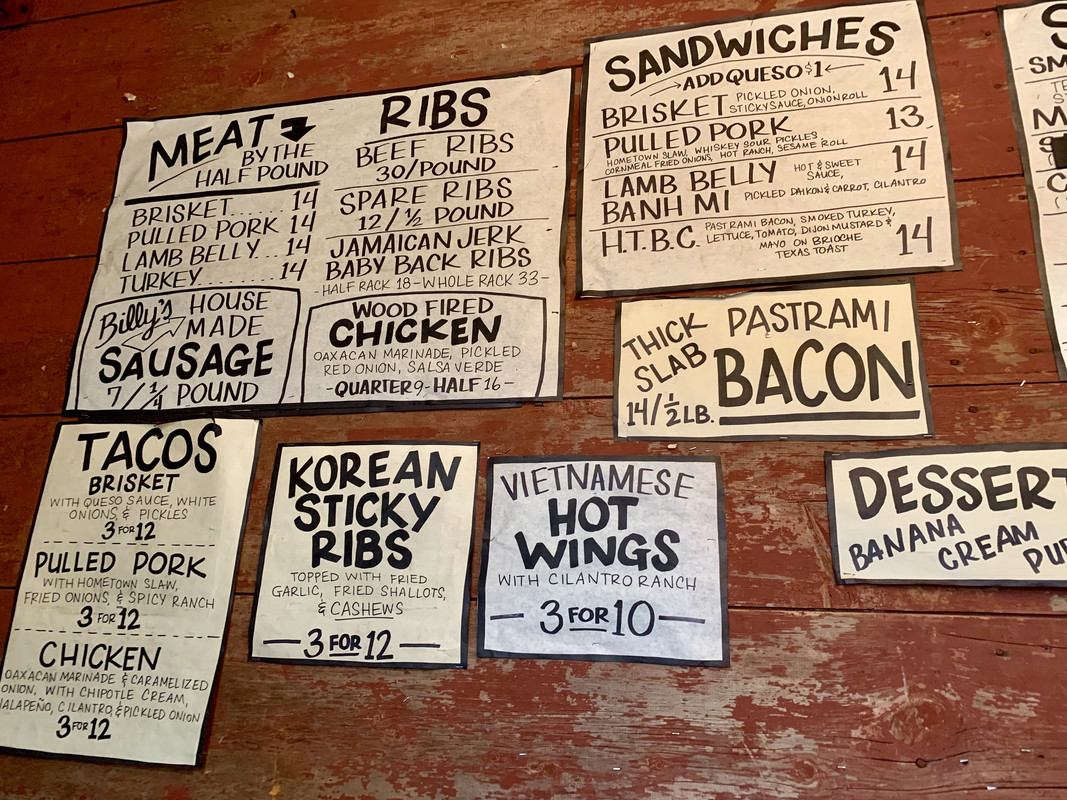 MEAT
BY THE
HALF POUND
BRISKET........ 14
PULLED PORK 14
LAMB BELLY... 14
TURKEY........ 14
Billy's HOUSE
MADE
SAUSAGE
7/¼ POUND
RIBS
BEEF RIBS
30/POUND
SPARE RIBS
12/½ POUND
JAMAICAN JERK
BABY BACK RIBS
-HALF RACK 18-WHOLE RACK 33-
WOOD FIRED
CHICKEN
OAXACAN MARINADE, PICKLED
RED ONION, SALSA VERDE
-QUARTER 9-HALF 16-
SANDWICHES
ADD QUESO $1
BRISKET PICKLED ONION, 14
STICKY SAUCE, ONION ROLL
PULLED PORK 13
HOMETOWN SLAW, WHISKEY SOUR PICKLES
CORNMEAL FRIED ONIONS, HOT RANCH, SESAME ROLL
LAMB BELLY HOT & SWEET 14
SAUCE,
BANH MI PICKLED DAIKON & CARROT, CILANTRO
H.T.B.C. PASTRAMI BACON, SMOKED TURKEY,
LETTUCE, TOMATO, DIJON MUSTARD & 14
MAYO ON BRIOCHE
TEXAS TOAST
THICK
SLAB
14/½ LB.
PASTRAMI
BACON
TACOS
BRISKET
WITH QUESO SAUCE, WHITE
ONIONS & PICKLES
3 FOR 12
PULLED PORK
WITH HOMETOWN SLAW,
FRIED ONIONS, & SPICY RANCH
3 FOR 12
CHICKEN
OAXACAN MARINADE & CARAMELIZED
ONION, WITH CHIPOTLE CREAM,
JALAPEÑO, CILANTRO, & PICKLED ONION
3 FOR 12
KOREAN
STICKY
RIBS
TOPPED WITH FRIED
GARLIC, FRIED SHALLOTS,
& CASHEWS
3 FOR 12
VIETNAMESE
HOT
WINGS
WITH CILANTRO RANCH
3 FOR 10
DESSERT
BANANA
CREAM
PU